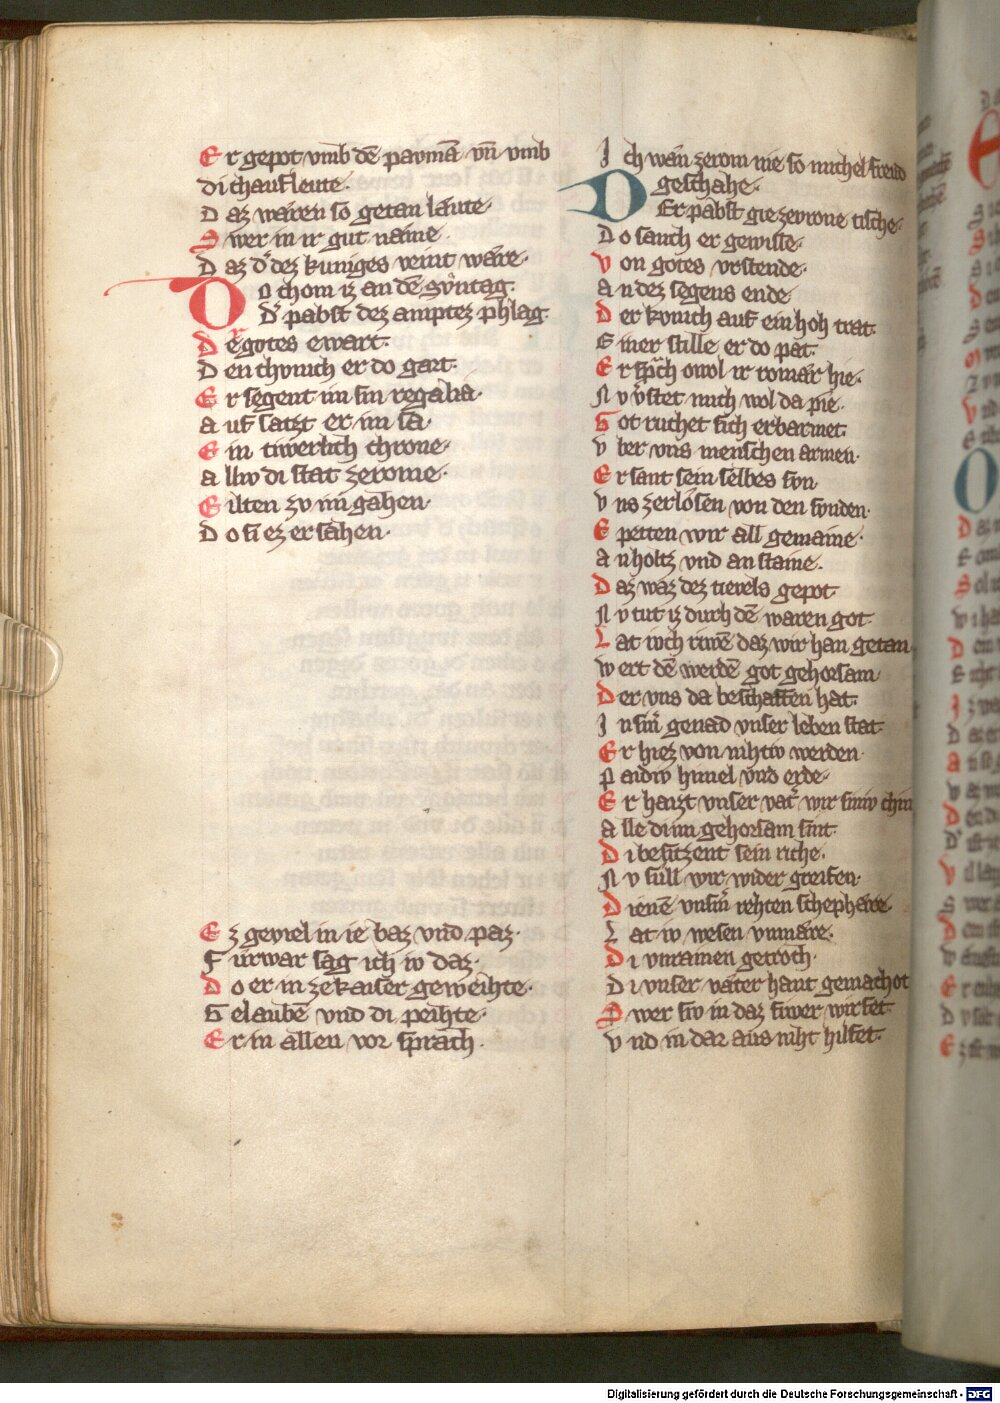 Er gepot vmb dē pavmā vn̄ vmb
di chaufleute·
Daz waren so getan laute·
Swer in ir gut naime
Daz d͛ dez kuniges veint ware·
Do chom iz an dē svntag·
D͛ pabst dez amptez phlag·
Der gotes ewart·
Den chvnich er do gart·
Er segent im sin regalia·
auf satzt er im sa·
Ein tiwerlich chrone·
allw di stat zerome·
Eilten zv im gahen·
Do si ez ersahen·
Ez geviel in ie baz vnd paz·
Furwar sag ich iv daz·
Do er in ze kaiser geweihte·
Gelauben vnd di peihte·
Er in allen vor sprach·
Ich wan zerom nie so michel freud
geschahe·
DEr pabst gie zevrone tische·
Do sanch er gewisse·
Von gotes vrstende·
an dez segens ende
Der kvnich auf ein hoh trat·
Einer stille er do pat·
Er sprach owol ir romār hie·
Nv vŕstet mich wol da pie·
Got ruchet sich erbarmet
vber vns menschen armen·
Er sant sein selbes svn
vns zerlosen von den svnden·
E petten wir all gemaine·
an holtz vnd an staine·
Daz waz dez tievels gepot
Nv tut iz durch dē waren got·
Lat iwch riwē daz wir han getan
wert dē werdē got gehorsam·
Der vns da beschaffen hat·
In sin͛ genad vnser leben stat·
Er hiez von nihtiv werden·
paidiv himel vnd erde·
Er haizt vnser vat͛ wir siniv chin
alle di im gehorsam sint·
Di besitzent sein riche·
Nv sull wir wider greifen·
Dienē vnsm͛ rehten schephare
Lat iv wesen vnmare·
Di vnramen getroch·
Di vnser vater hant gemachot
Swer siv in daz fiwer wirfet·
vnd in dar aus niht hilfet·
Digitalisierung gefördert durch die Deutsche Forschungsgemeinschaft - DFG